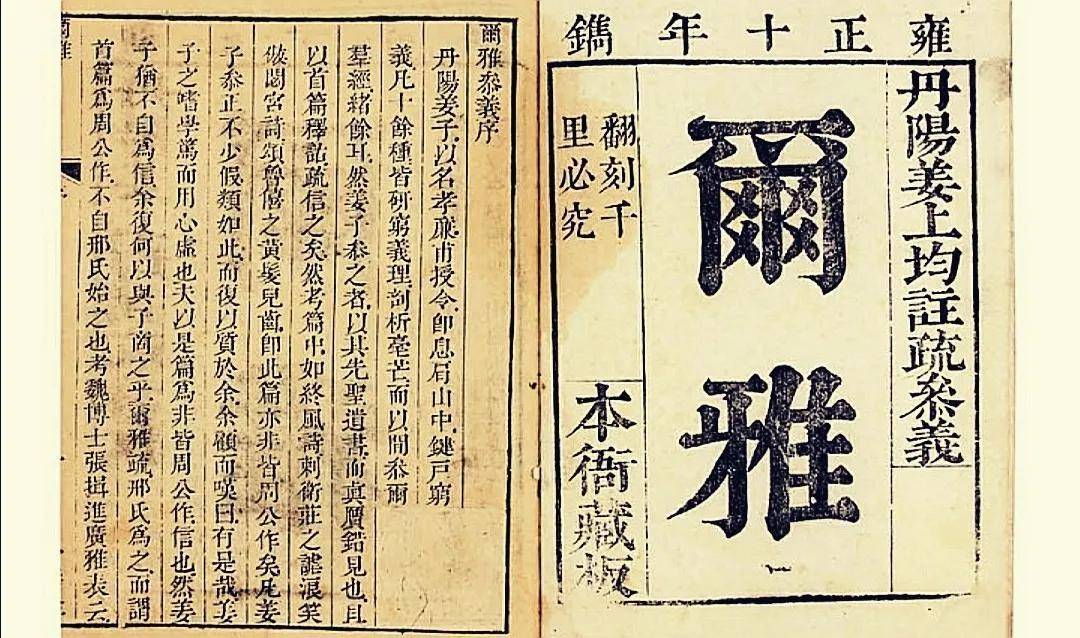 雍正十年鐫
丹陽姜上均註疏叅義
爾雅
翻刻千
里必究
本衙藏板
爾雅叅義序
丹陽姜子以名孝廉甫授令即息肩山中鍵戸窮
義凡十餘種皆硏窮義理剖析毫芒而以間叅爾
羣經緒餘耳然姜子叅之者以其先聖遺書而眞贋錯見也且
以首篇釋詁疏信之矣然考篇中如終風詩刺衛莊之謔浪笑
倣閟宮詩頌魯僖之黃髮兒齒即此篇亦非皆周公作矣凡姜
子叅正不少假類如此而復以質於余余顧而嘆曰有是哉姜
子之嗜學篤而用心虛也夫以是篇爲非皆周公作信也然姜
子猶不自爲信余復何以與子商之乎爾雅疏邢氏爲之而謂
首篇爲周公作不自邢氏始之也考魏博士張揖進廣雅表云
爾雅